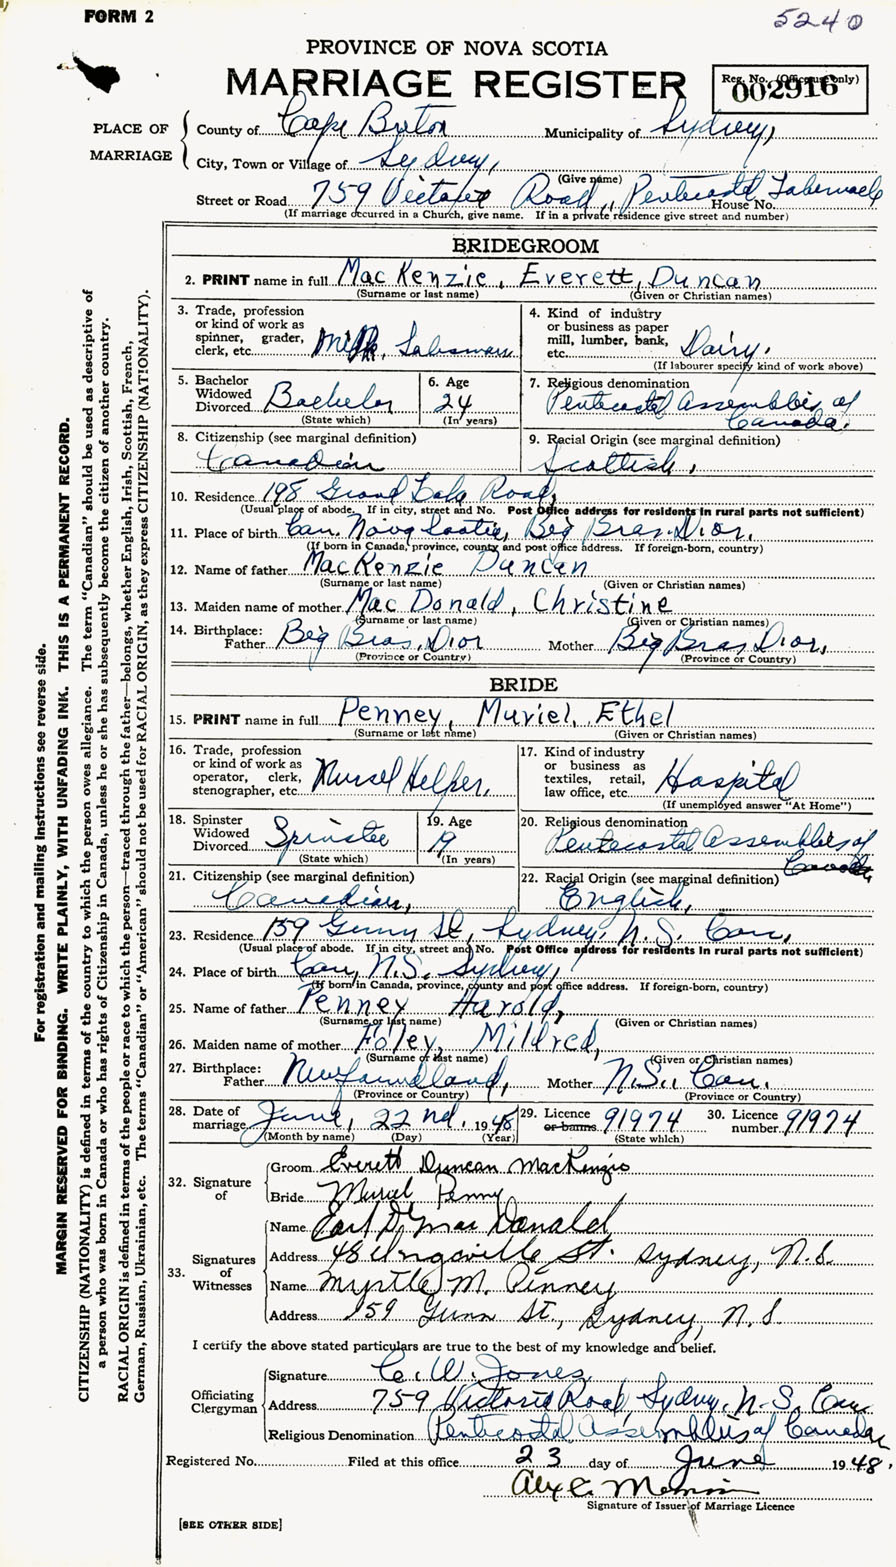 FORM 2
5240
PROVINCE OF NOVA SCOTIA
MARRIAGE REGISTER
Reg. No. (Office use only)
002916
PLACE OF MARRIAGE
County of Cape Breton Municipality of Sydney,
City, Town or Village of Sydney,
(Give name)
Street or Road 759 Victoria Road, Pentecostal Tabernacle House No.
(If marriage occurred in a Church, give name. If in a private residence give street and number)
BRIDEGROOM
2. PRINT name in full MacKenzie, Everett, Duncan
(Surname or last name) (Given or Christian names)
3. Trade, profession or kind of work as spinner, grader, clerk, etc. Milk Salesman
4. Kind of industry or business as paper mill, lumber, bank, etc. Dairy.
(If labourer specify kind of work above)
5. Bachelor Widowed Divorced Bachelor
(State which)
6. Age 24
(In years)
7. Religious denomination Pentecostal Assemblies of Canada.
8. Citizenship (see marginal definition) Canadian
9. Racial Origin (see marginal definition) Scottish,
10. Residence 198 Grand Lake Road,
(Usual place of abode. If in city, street and No. Post Office address for residents in rural parts not sufficient)
11. Place of birth Can. Nova Scotia, Big Bras. Dior.
(If born in Canada, province, county and post office address. If foreign-born, country)
12. Name of father MacKenzie Duncan
(Surname or last name) (Given or Christian names)
13. Maiden name of mother MacDonald, Christine
(Surname or last name) (Given or Christian names)
14. Birthplace: Father Big Bras. Dior Mother Big Bras. Dior,
(Province or Country) (Province or Country)
BRIDE
15. PRINT name in full Penney, Muriel, Ethel
(Surname or last name) (Given or Christian names)
16. Trade, profession or kind of work as operator, clerk, stenographer, etc. Helper,
17. Kind of industry or business as textiles, retail, law office, etc. Hospital
(If unemployed answer "At Home")
18. Spinster Widowed Divorced Spinster
(State which)
19. Age 19
(In years)
20. Religious denomination Pentecostal Assemblies of Canada
21. Citizenship (see marginal definition) Canadian,
22. Racial Origin (see marginal definition) English,
23. Residence 159 Gunn St, Sydney, N.S. Can,
(Usual place of abode. If in city, street and No. Post Office address for residents in rural parts not sufficient)
24. Place of birth Can, N.S. Sydney,
(If born in Canada, province, county and post office address. If foreign-born, country)
25. Name of father Penney Harold,
(Surname or last name) (Given or Christian names)
26. Maiden name of mother Foley, Mildred,
(Surname or last name) (Given or Christian names)
27. Birthplace: Father Newfoundland, Mother N.S., Can.
(Province or Country) (Province or Country)
28. Date of marriage June, 22nd, 1948
(Month by name) (Day) (Year)
29. Licence or banns 91974
(State which)
30. Licence number 91974
32. Signature of
Groom Everett Duncan MacKenzie
Bride Muriel Penny
33. Signatures of Witnesses
Name Earl D. MacDonald
Address 48 St. Sydney, N.S.
Name Myrtle M. Penney
Address 159 Gunn St., Sydney, N.S
I certify the above stated particulars are true to the best of my knowledge and belief.
Officiating Clergyman
Signature C. W. Jones
Address 759 Victoria Road, Sydney, N.S. Can
Religious Denomination Pentecostal Assemblies of Canada
Registered No. Filed at this office 23 day of June 1948.
Alex C.
Signature of Issuer of Marriage Licence
[SEE OTHER SIDE]
For registration and mailing instructions see reverse side.
MARGIN RESERVED FOR BINDING. WRITE PLAINLY, WITH UNFADING INK. THIS IS A PERMANENT RECORD.
CITIZENSHIP (NATIONALITY) is defined in terms of the country to which the person owes allegiance. The term "Canadian" should be used as descriptive of
a person who was born in Canada or who has rights of Citizenship in Canada, unless he or she has subsequently become the citizen of another country.
RACIAL ORIGIN is defined in terms of the people or race to which the person—traced through the father—belongs, whether English, Irish, Scottish, French,
German, Russian, Ukrainian, etc. The terms "Canadian" or "American" should not be used for RACIAL ORIGIN, as they express CITIZENSHIP (NATIONALITY).